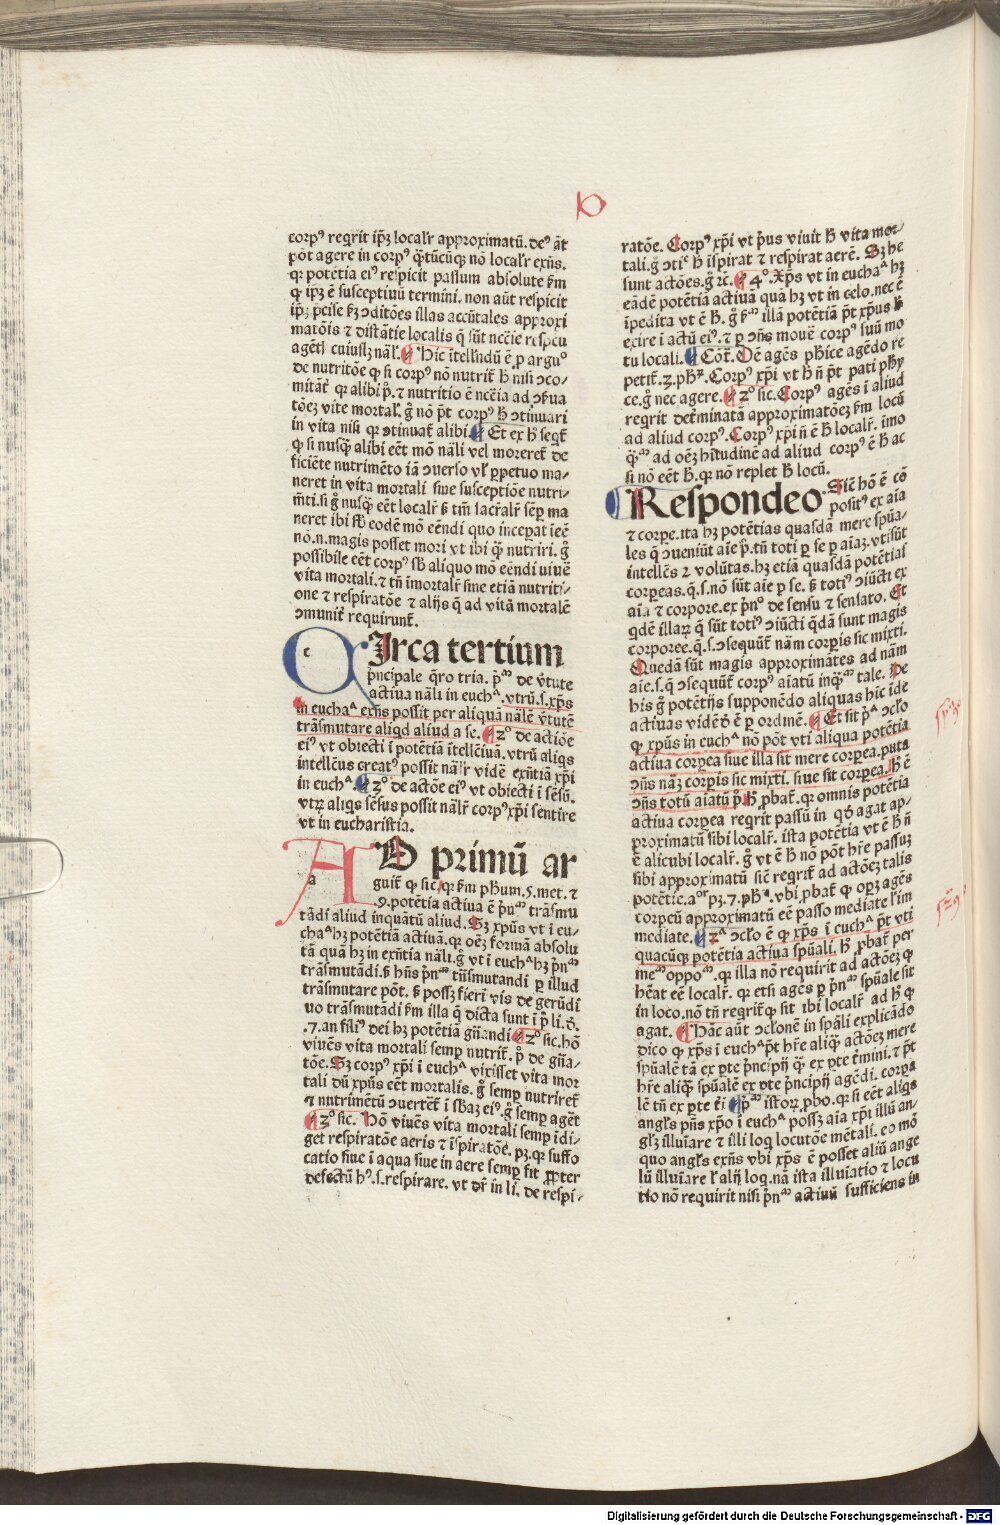 10
corpꝰ reqrit ip̄ꝫ localr̄ approximatū. deꝰ āt
pōt agere in corpꝰ q̄ntūcūqꝫ nō localr̄ exn̄s.
qꝛ potētia eiꝰ respicit passum absolute ſm
ꝙ ipꝫ ē susceptiuū termini. non aūt respicit
ip̄ꝫ p̄cise ſꝫ ꝯditōes illas accn̄tales approxi
matōis ⁊ distātie localis q̄ sūt nc̄cīe respcū
agētꝭ cuiuslꝫ nālꝭ. Hic ītellndū ē ꝓ arguᵒ
de nutritōe ꝙ si corpꝰ nō nutrit̄ h̄ nisi ꝯco-
mitāt̄ qꝛ alibi p̄. ⁊ nutritio ē nccīa ad ꝯẜua
tōeꝫ vite mortalꝭ. g̊ nō p̄t corpꝰ h̄ ꝯtinuari
in vita nisi qꝛ ꝯtinuat̄ alibi. Et ex hᵒ seqt̄
ꝙ si nusq̄ alibi eēt mō nāli vel moreret̄ de
ficiēte nutrimēto iā ꝯuerso vl̄ ꝑpetuo ma-
neret in vita mortali siue susceptiōe nutri-
m̄ti. si g̊ nusq̄ eēt localr̄ ꝫ tm̄ sacr̄alr̄ semꝑ ma
neret ibi sb̄ eodē mō eēndi quo incepat ieē
nō .n. magis posset mori vt ibi q̄ꝫ nutriri. g̊
possibile eēt corpꝰ sb̄ aliquo mō eēndi viuē
vita mortali. ⁊ tn̄ īmortalr̄ sine etiā nutriti-
one ⁊ respiratōe ⁊ alijs q̄ ad vitā mortalē
ꝯmunit̄ requirunt̄.
c Irca tertium
pncipale q̄ro tria. pᵐ de v̄tute
actiua nāli in euchᵃ. vtrū .s. xp̄s
in euchaᵃ exn̄s possit per aliquā nālē v̄tutē
trāsmutare aliqd aliud a se. 2ᵒ de actiōe
eiꝰ vt obiecti ī potētiā ītellēiuā. vtrū aliqs
intellēus creatꝰ possit nālr̄ vidē exn̄tiā xp̄i
in euchᵃ. 3ᵒ de actōe eiꝰ vt obiecti ī sēsū.
vtꝝ aliqs sēsus possit nālr̄ corpꝰ xp̄i sentire
vt in eucharistia.
a D primū ar
guit̄ ꝙ sic. qꝛ ſm phum. 5. met. ⁊
.9. potētia actiua ē pn̄ᵐ trāsmu
tādi aliud inquātū aliud. Sꝫ xpūs vt ī eu-
chaᵃ hꝫ potētiā actiuā. qꝛ oēꝫ formā absolu
tā quā hꝫ in exn̄tia nāli. g̊ vt ī euchᵃ hꝫ pn̄ᵐ
trāsmutādi. ꝫ hn̄s pn̄ᵐ tn̄smutandi ꝑ illud
trāsmutare pōt. ꝫ possꝫ fieri vis de gerūdi
uo trāsmutādi ſm illa q̄ dicta sunt ī p̄ li. d̄.
.7. an filiꝰ dei hꝫ potētiā gn̄andi 2ᵒ sic. hō
viuēs vita mortali semꝑ nutrit̄. p̊ de gn̄a-
tōe. Sꝫ corpꝰ xp̄i ī euchᵃ vixisset vita mor
tali dū xpūs eēt mortalis. g̊ semꝑ nutriret̄
⁊ nutrimētū ꝯuertet̄ ī sb̄aꝫ eiꝰ. g̊ semꝑ agēt
3ᵒ sic. Hō viuēs vita mortali semꝑ īdi-
get respiratōe aeris ⁊ īspiratōe. pꝫ. qꝛ suffo
catio siue ī aqua siue in aere semꝑ fit ꝓpter
defectū hꝰ .s. respirare. vt dr̄ in li. de respi-
ratōe. Corpꝰ xp̄i vt p̄us viuit h̄ vita mor-
tali. g̊ ꝯtiᵉ h̄ īspirat ⁊ respirat aerē. Sꝫ he
sunt actōes. g̊ ꝛc. 4ᵒ. Xp̄s vt in euchaᵃ hꝫ
eādē potētiā actiuā quā hꝫ vt in celo. nec ē
īpedita vt ē h̄. g̊ ſm illā potētiā p̄t xpūs h̄
exire ī actū eiꝰ. ⁊ ꝑ ꝯn̄s mouē corpꝰ suū mo
tu locali. Cōt̄. Oē agēs phīce agēdo re
petit̄. 3. phꝫ. Corpꝰ xp̄i vt h̄ n̄ p̄t pati phy
ce. g̊ nec agere. 2ᵒ sic. Corpꝰ agēs ī aliud
reqrit det̄minatā approximatōeꝫ ſm locū
ad aliud corpꝰ. Corpꝰ xp̄i n̄ ē h̄ localr̄. īmo
q̄ᵐ ad oēꝫ hītudinē ad aliud corpꝰ ē h̄ ac
si nō eēt h̄. qꝛ nō replet h̄ locū.
Respondeo Sic̄ hō ē cō
positꝰ ex aīa
⁊ corpe. ita hꝫ potētias quasdā mere spūa-
les q̄ ꝯueniūt aīe p̄. tn̄ toti ꝑ se ꝑ aīaꝫ. vt sūt
intellēs ⁊ volūtas. hꝫ etiā quasdā potētias
corpeas. q̄ .s. nō sūt aīe ꝑ se. ꝫ totiꝰ ꝯiūcti ex
aīa ⁊ corpore. ex pn̄ᵒ de sensu ⁊ sensato. Et
qdē illaꝝ q̄ sūt totiꝰ ꝯiūcti q̄dā sunt magis
corporee. q̄ .s. ꝯsequūt̄ nām corpis sic mixti.
Quedā sūt magis approximātes ad nām
aīe. s. q̄ ꝯsequūt̄ corpꝰ aīatū inq̄ᵐ tale. De
his g̊ potētijs supponēdo aliquas hic īde
actiuas vidēdū ē ꝑ ordinē. Et sit pᵃ ꝯclo
ꝙ xpūs in euchᵃ nō pōt vti aliqua potētia
actiua corpea siue illa sit mere corpea. puta
ꝯn̄s naꝫ corpis sic mixti. siue sit corpea. ꝫ ē
ꝯn̄s totū aīatū p̄. h̄ ꝓbat̄. qꝛ omnis potētia
actiua corpea reqrit passū in qd̄ agat ap-
proximatū sibi localr̄. ista potētia vt ē h̄ n̄
ē alicubi localr̄. g̊ vt ē h̄ nō pōt hr̄e passuꝫ
sibi approximatū sic̄ reqrit̄ ad actōeꝫ talis
potētie. aᵒʳ pꝫ. 7. phꝭ. vbi ꝓbat̄ ꝙ opꝫ agēs
corpeū approximatū eē passo mediate ł im
mediate. 2ᵃ ꝯclo ē ꝙ xp̄s ī euchᵃ p̄t vti
quacūqꝫ potētia actiua spūali. h̄ ꝓbat̄ per
meᵐ oppoᵐ. qꝛ illa nō requirit ad actōeꝫ ꝙ
hēat eē localr̄. qꝛ etsi agēs ꝑ pn̄ᵐ spūale sit
in loco. nō tn̄ reqrit̄ ꝙ sit ibi localr̄ ad h̄ ꝙ
agat. Hāc aūt ꝯclonē in spāli explicādo
dico ꝙ xp̄s ī euchᵃ p̄t hr̄e aliq̄ actōeꝫ mere
spūalē tā ex ꝑte p̄ncipij q̄ꝫ ex ꝑte t̄mini. ⁊ p̄t
hr̄e aliq̄ spūalē ex ꝑte p̄ncipij agēdi. corpa
lē tn̄ ex ꝑte t̄i pᵐ istoꝝ ꝓbo. qꝛ si eēt aliqs
angl̄s pn̄s xp̄o ī euchᵃ possꝫ aīa xp̄i illū an-
gl̄ꝫ illuīare ⁊ illi loq locutōe mētali. eo mō
quo angl̄s exn̄s vbi xp̄s ē posset aliū ange
lū illuīare ł alij loq. nā ista illuīatio ⁊ locu
tio nō requirit nisi pn̄ᵐ actiuū sufficiens in
Digitalisierung gefördert durch die Deutsche Forschungsgemeinschaft - DFG